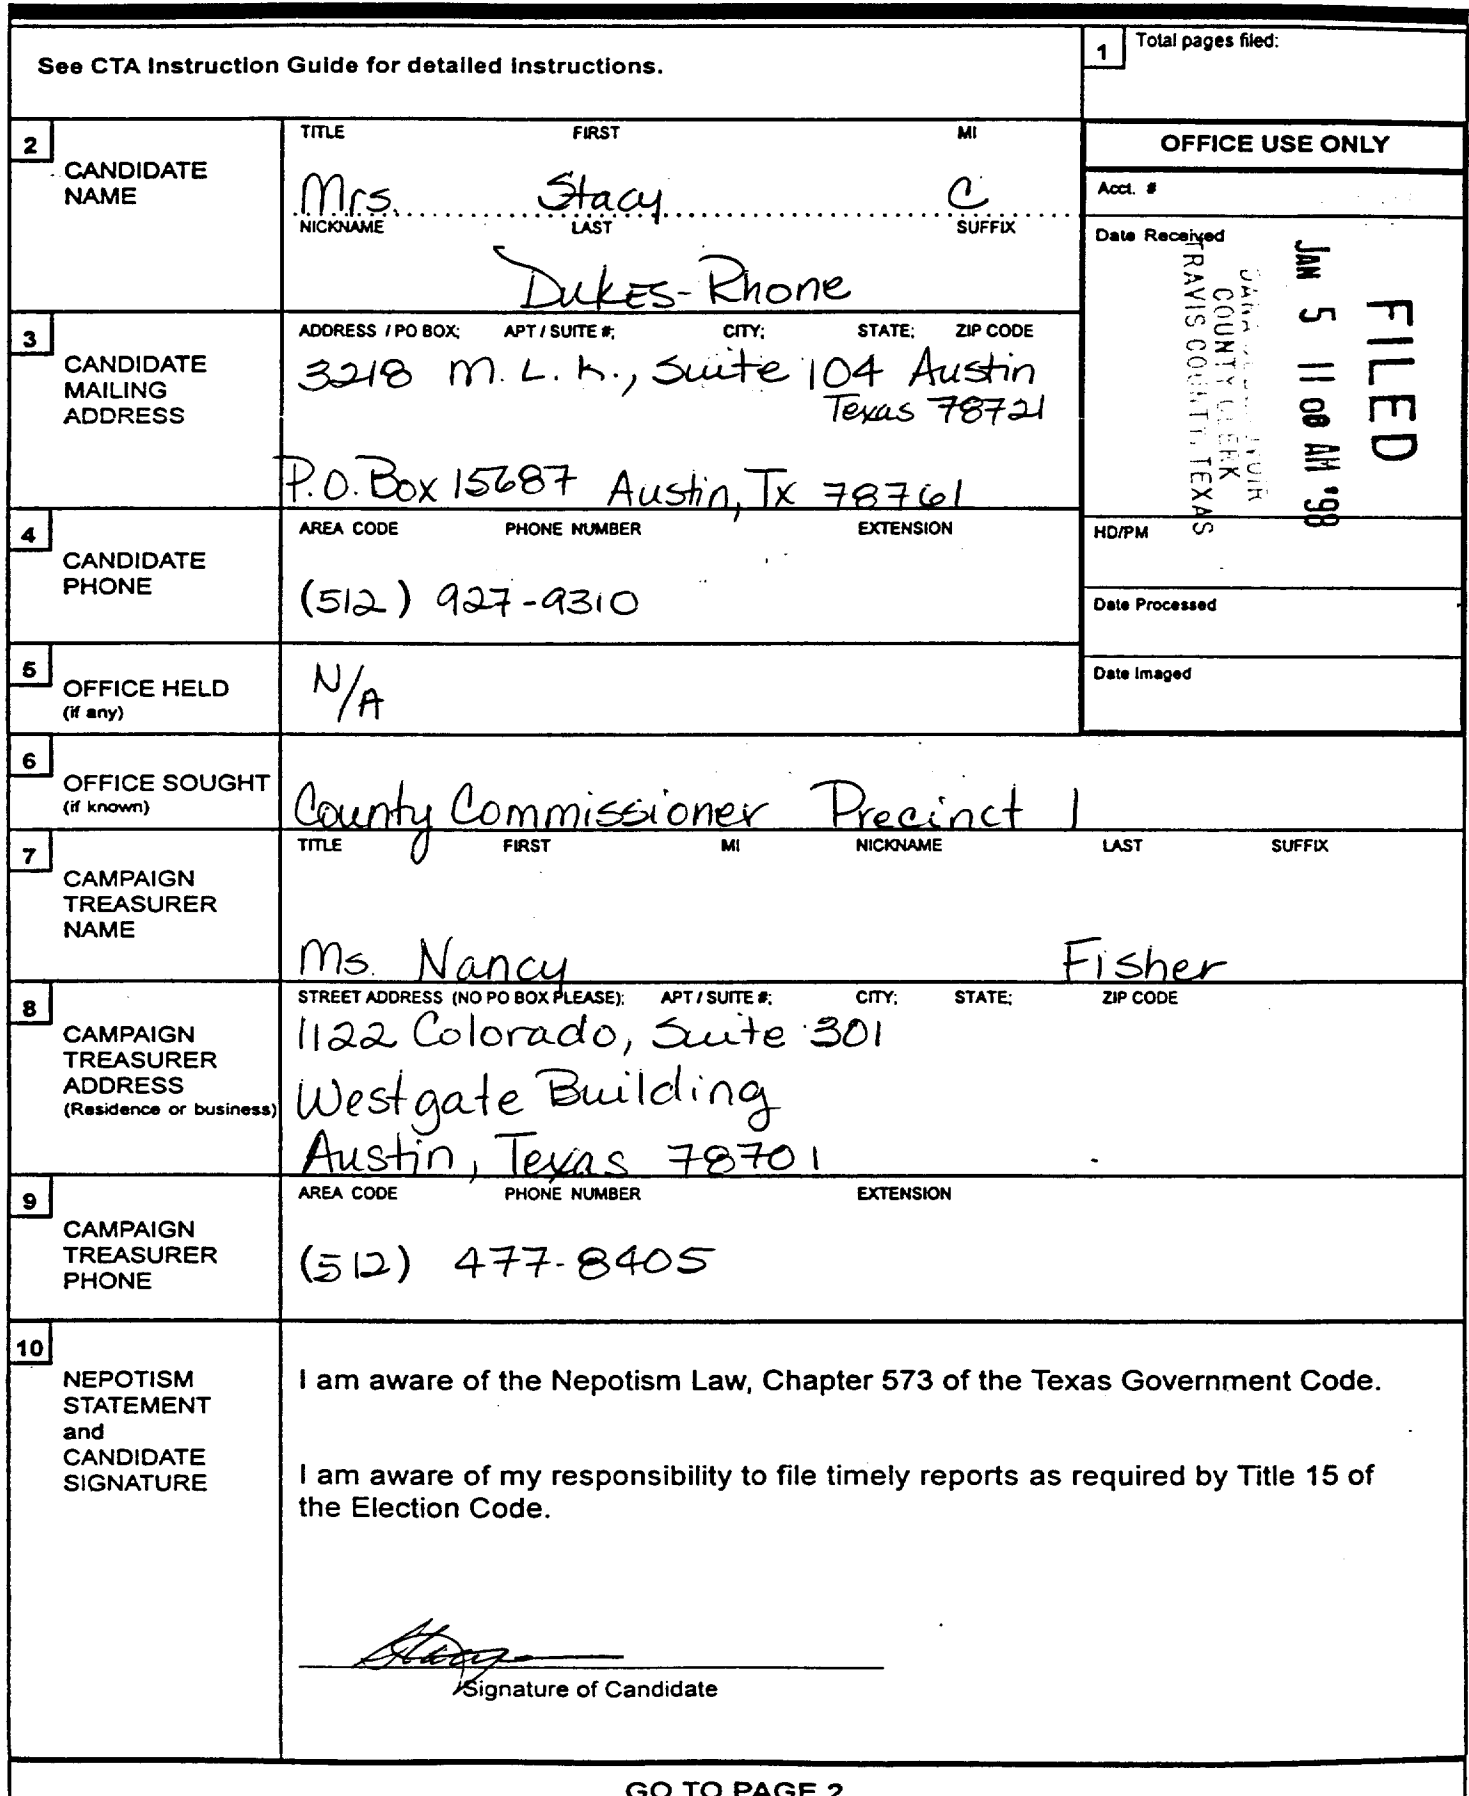 See CTA Instruction Guide for detailed instructions.
1 Total pages filed:
2 CANDIDATE NAME
TITLE FIRST MI
Mrs. Stacy C
NICKNAME LAST SUFFIX
Dukes-Rhone
OFFICE USE ONLY
Acct. #
Date Received
FILED
JAN 5 11 08 AM '98
COUNTY CLERK
TRAVIS COUNTY, TEXAS
HD/PM
Date Processed
Date Imaged
3 CANDIDATE MAILING ADDRESS
ADDRESS / PO BOX; APT / SUITE #; CITY; STATE; ZIP CODE
3218 M. L. K., Suite 104 Austin
Texas 78721
P.O. Box 15687 Austin, Tx 78761
4 CANDIDATE PHONE
AREA CODE PHONE NUMBER EXTENSION
(512) 927-9310
5 OFFICE HELD (if any)
N/A
6 OFFICE SOUGHT (if known)
County Commissioner Precinct 1
7 CAMPAIGN TREASURER NAME
TITLE FIRST MI NICKNAME LAST SUFFIX
Ms. Nancy Fisher
8 CAMPAIGN TREASURER ADDRESS (Residence or business)
STREET ADDRESS (NO PO BOX PLEASE); APT / SUITE #; CITY; STATE; ZIP CODE
1122 Colorado, Suite 301
Westgate Building
Austin, Texas 78701
9 CAMPAIGN TREASURER PHONE
AREA CODE PHONE NUMBER EXTENSION
(512) 477-8405
10 NEPOTISM STATEMENT and CANDIDATE SIGNATURE
I am aware of the Nepotism Law, Chapter 573 of the Texas Government Code.
I am aware of my responsibility to file timely reports as required by Title 15 of
the Election Code.
Signature of Candidate
GO TO PAGE 2